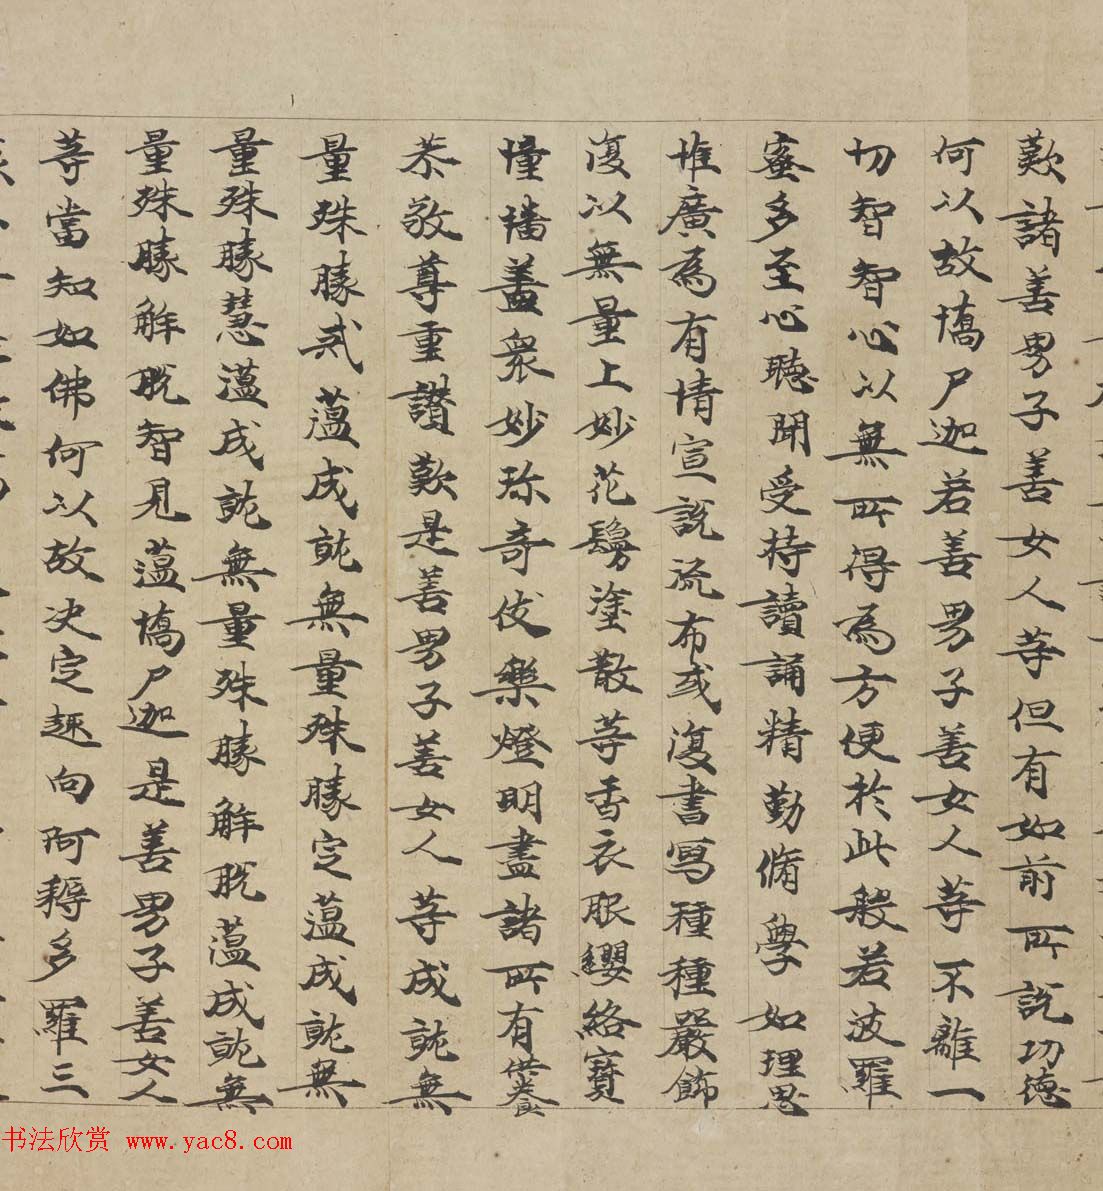 歎諸善男子善女人等但有如前所説功德
何以故憍尸迦若善男子善女人等不離一
切智智心以無所得為方便於此般若波羅
蜜多至心聽聞受持讀誦精勤脩學如理思
惟廣為有情宣説流布或復書寫種種嚴飾
復以無量上妙花鬘塗散等香衣服纓絡寶
憧憣盖衆妙珎奇伎樂燈明盡諸所有供養
恭敬尊重讃歎是善男子善女人等成就無
量殊勝戒蕰成就無量殊勝定蕰成就無
量殊勝慧蕰成就無量殊勝解脱蕰成就無
量殊勝解脱智見蕰憍尸迦是善男子善女人
等當知如佛何以故決定趣向阿耨多羅三
书法欣赏 www.yac8.com